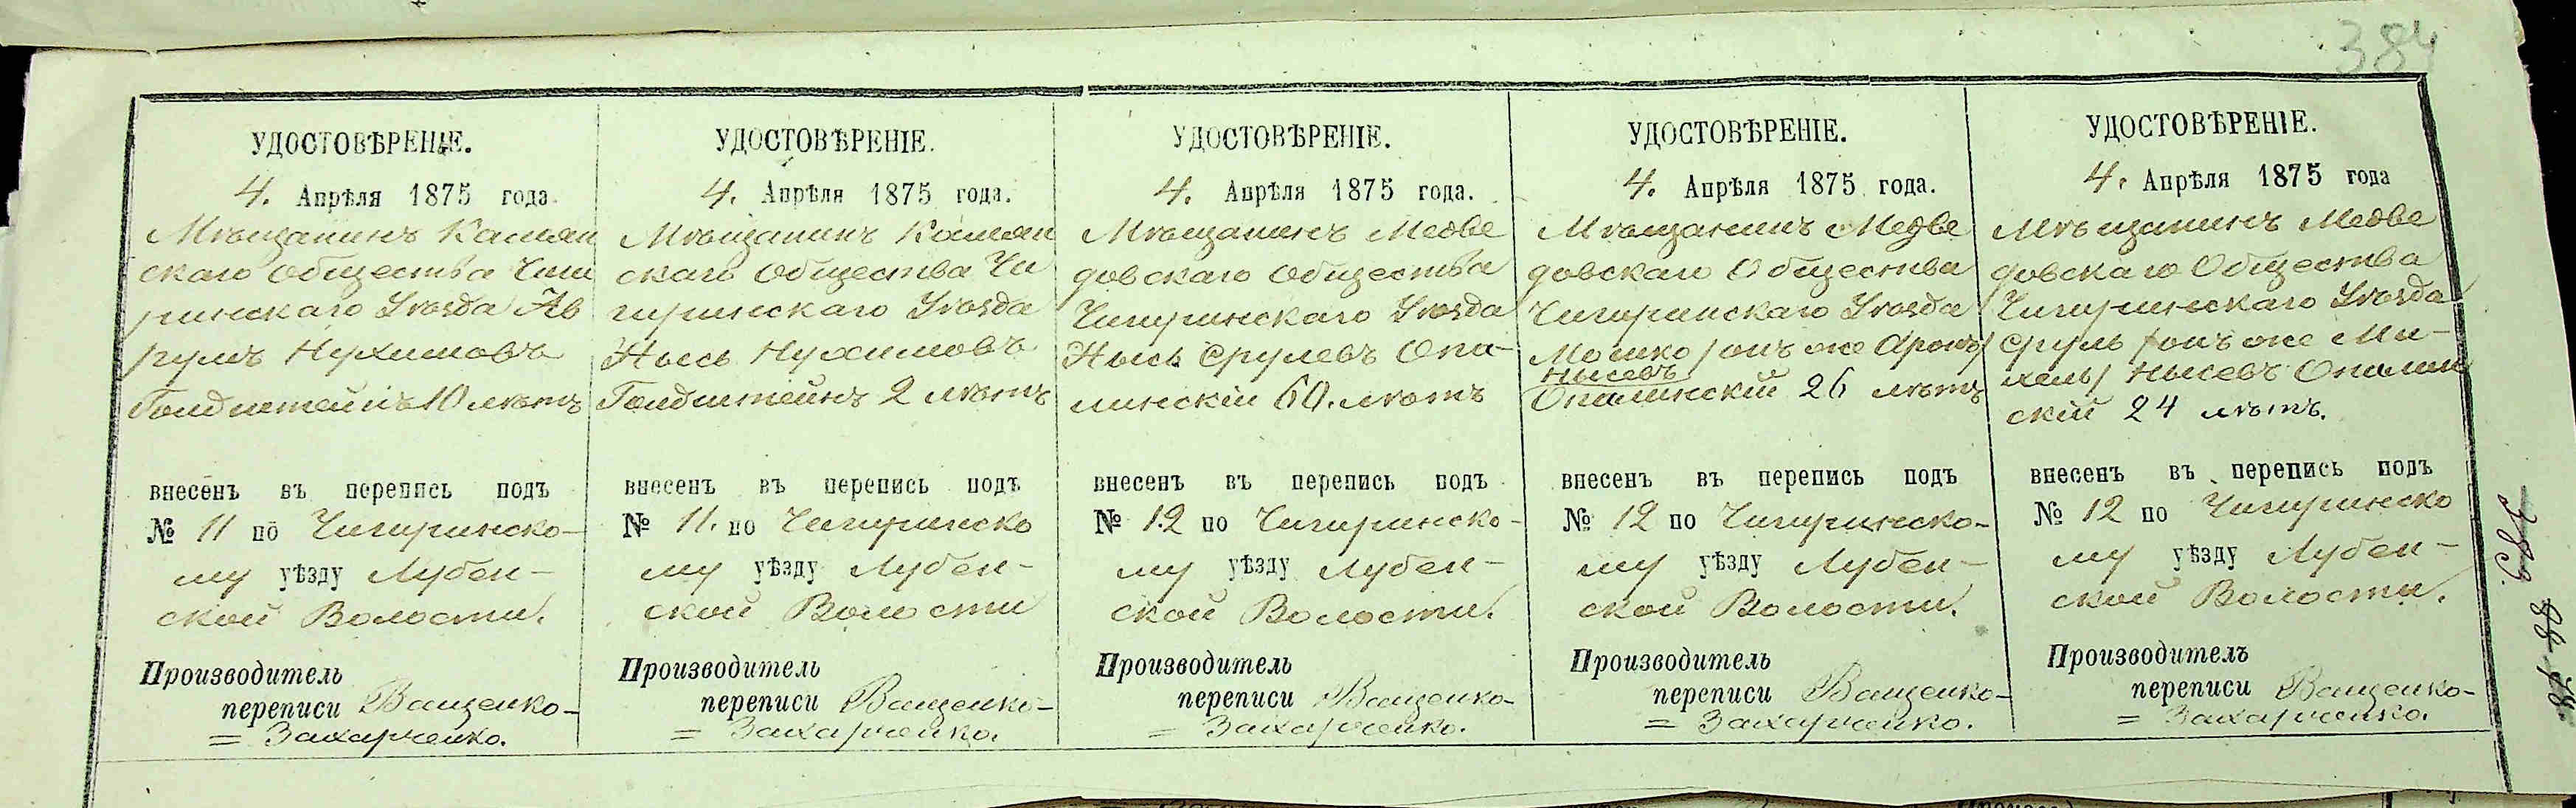 384
УДОСТОВѢРЕНІЕ.
4. Апрѣля 1875 года
Мѣщанинъ Камян
скаго Общества Чиги
ринскаго Уѣзда Ав
румъ Нухимовъ
Гольдштейнъ 10 лѣтъ
внесенъ въ перепись подъ
№ 11 по Чигиринско-
му уѣзду Лубен-
ской Волости.
Производитель
переписи Ващенко-
= Захарченко.
УДОСТОВѢРЕНІЕ.
4. Апрѣля 1875 года.
Мѣщанинъ Камян
скаго Общества Чи
гиринскаго Уѣзда
Нысь Нухимовъ
Гольдштейнъ 2 лѣтъ
внесенъ въ перепись подъ
№ 11. по Чигиринско
му уѣзду Лубен-
ской Волости
Производитель
переписи Ващенко-
= Захарченко.
УДОСТОВѢРЕНІЕ.
4. Апрѣля 1875 года.
Мѣщанинъ Медве
довскаго Общества
Чигиринскаго Уѣзда
Нысь Срулевъ Опа-
линскій 60. лѣтъ
внесенъ въ перепись подъ
№ 12 по Чигиринско-
му уѣзду Лубен-
ской Волости.
Производитель
переписи Ващенко-
= Захарченко.
УДОСТОВѢРЕНІЕ.
4. Апрѣля 1875 года.
Мѣщанинъ Медве
довскаго Общества
Чигиринскаго Уѣзда
Мошко /онъ же Аронъ/
Нысевъ
Опалинскій 26 лѣтъ
внесенъ въ перепись подъ
№ 12 по Чигиринско-
му уѣзду Лубен-
ской Волости.
Производитель
переписи Ващенко-
= Захарченко.
УДОСТОВѢРЕНІЕ.
4. Апрѣля 1875 года
Мѣщанинъ Медве
довскаго Общества
Чигиринскаго Уѣзда
Сруль /онъ же Ми-
хель/ Нысевъ Опалин
скій 24 лѣтъ.
внесенъ въ перепись подъ
№ 12 по Чигиринско
му уѣзду Лубен-
ской Волости.
Производитель
переписи Ващенко-
= Захарченко.